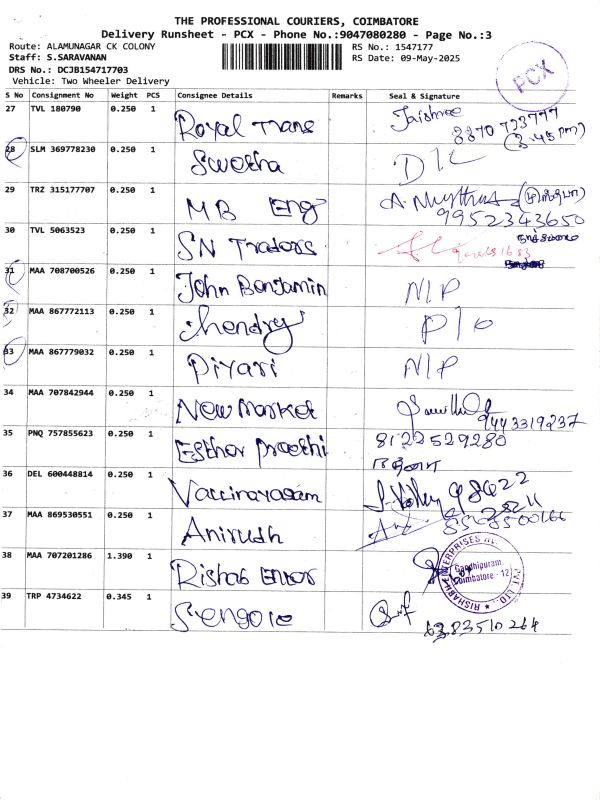 THE PROFESSIONAL COURIERS, COIMBATORE
Delivery Runsheet - PCX - Phone No.:9047080280 - Page No.:3
Route: ALAMUNAGAR CK COLONY RS No.: 1547177
Staff: S.SARAVANAN RS Date: 09-May-2025
DRS No.: DCJB154717703
Vehicle: Two Wheeler Delivery
PCX
S No Consignment No Weight PCS Consignee Details Remarks Seal & Signature
27 TVL 180790 0.250 1 Royal Trans Jaishree
8870723777
(3.45 pm)
28 SLM 369778230 0.250 1 Swetha D/L
29 TRZ 315177707 0.250 1 MB Eng
9952343650
30 TVL 5063523 0.250 1 SN Traders
31 MAA 708700526 0.250 1 John Benjamin N/P
32 MAA 867772113 0.250 1 Chendry P/O
33 MAA 867779032 0.250 1 Piyari N/P
34 MAA 707842944 0.250 1 New Market
9443319237
35 PNQ 757855623 0.250 1 Esther Preethi 8122529280
36 DEL 600448814 0.250 1 Vallinayagam
37 MAA 869530551 0.250 1 Anirudh
38 MAA 707201286 1.390 1 Rishab Enter
Gandhipuram,
Coimbatore - 12
39 TRP 4734622 0.345 1 Sengole
6383510264